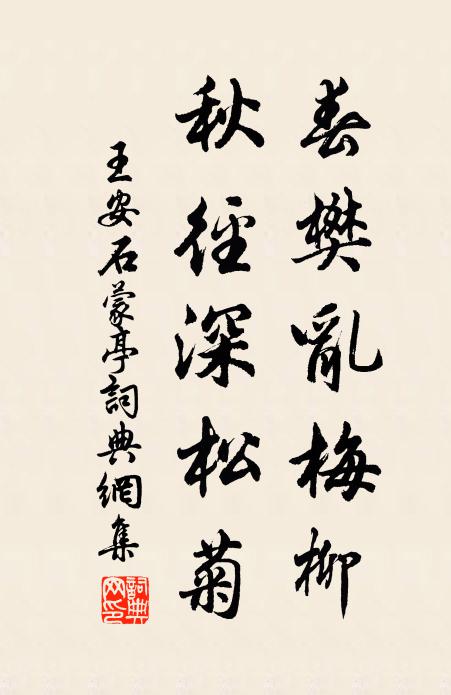 春樊亂梅柳
秋徑深松菊
王安石蒙亭詞典網集
詞典网印